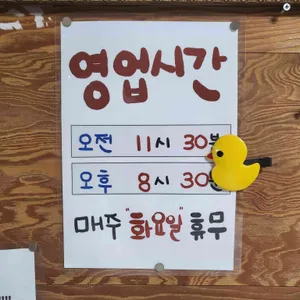 영업시간
오전 11시 30분
오후 8시 30분
매주 "화요일" 휴무